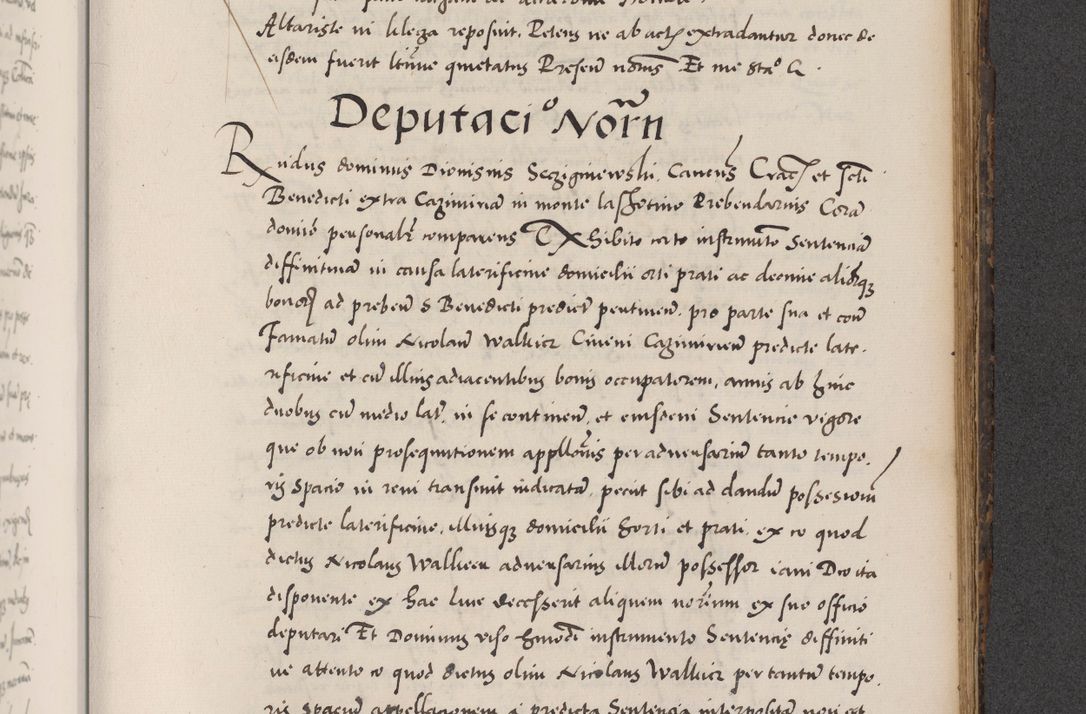 Altariste in lilega reposuit. Petens ne ab actis extradantur donec de
eisdem fuerit ltime quietatus Presen notus Et me
Deputacio Norn
Rndus dominus Dionisius Cancus Crac et scti
Benedicti extra Cazimiriam in monte lassotino Prebendarius Coram
domino personalr comparens Exhibito certo instrumto Sentenciam
diffinitivam in causa laterificine domicilii orti prati ac decime aliorque
bonorum ad preben S Benedicti predict pertinen. pro parte sua et con
Famatum olim Nicolaum Walkier Civem Cazimirien predicte late
rificine et cum illius adiacentibus bonis occupatorem, annis ab hinc
duobus cum medio lat. in se continen. et eiusdem Sentencie vigore
que ob non prosequutionem appllonis per adversarium tanto tempo
ris spacio in rem transivit iudicatam, peciit sibi ad dandum possesionem
predicte laterificine, illiusque domicilii horti et prati. ex eo quod
dictus Nicolaus Walkier adversarius illorum possessor iam Deo ita
disponente ex hac luce decesserit aliquem norium ex suo officio
deputari Et Dominus viso hmodi instrumento Sentencie diffiniti
ve attento eo quod dictus olim Nicolaus Walkier per tantum tempo
ris spacium appellacionem a predicta Sentencia interpositam non est